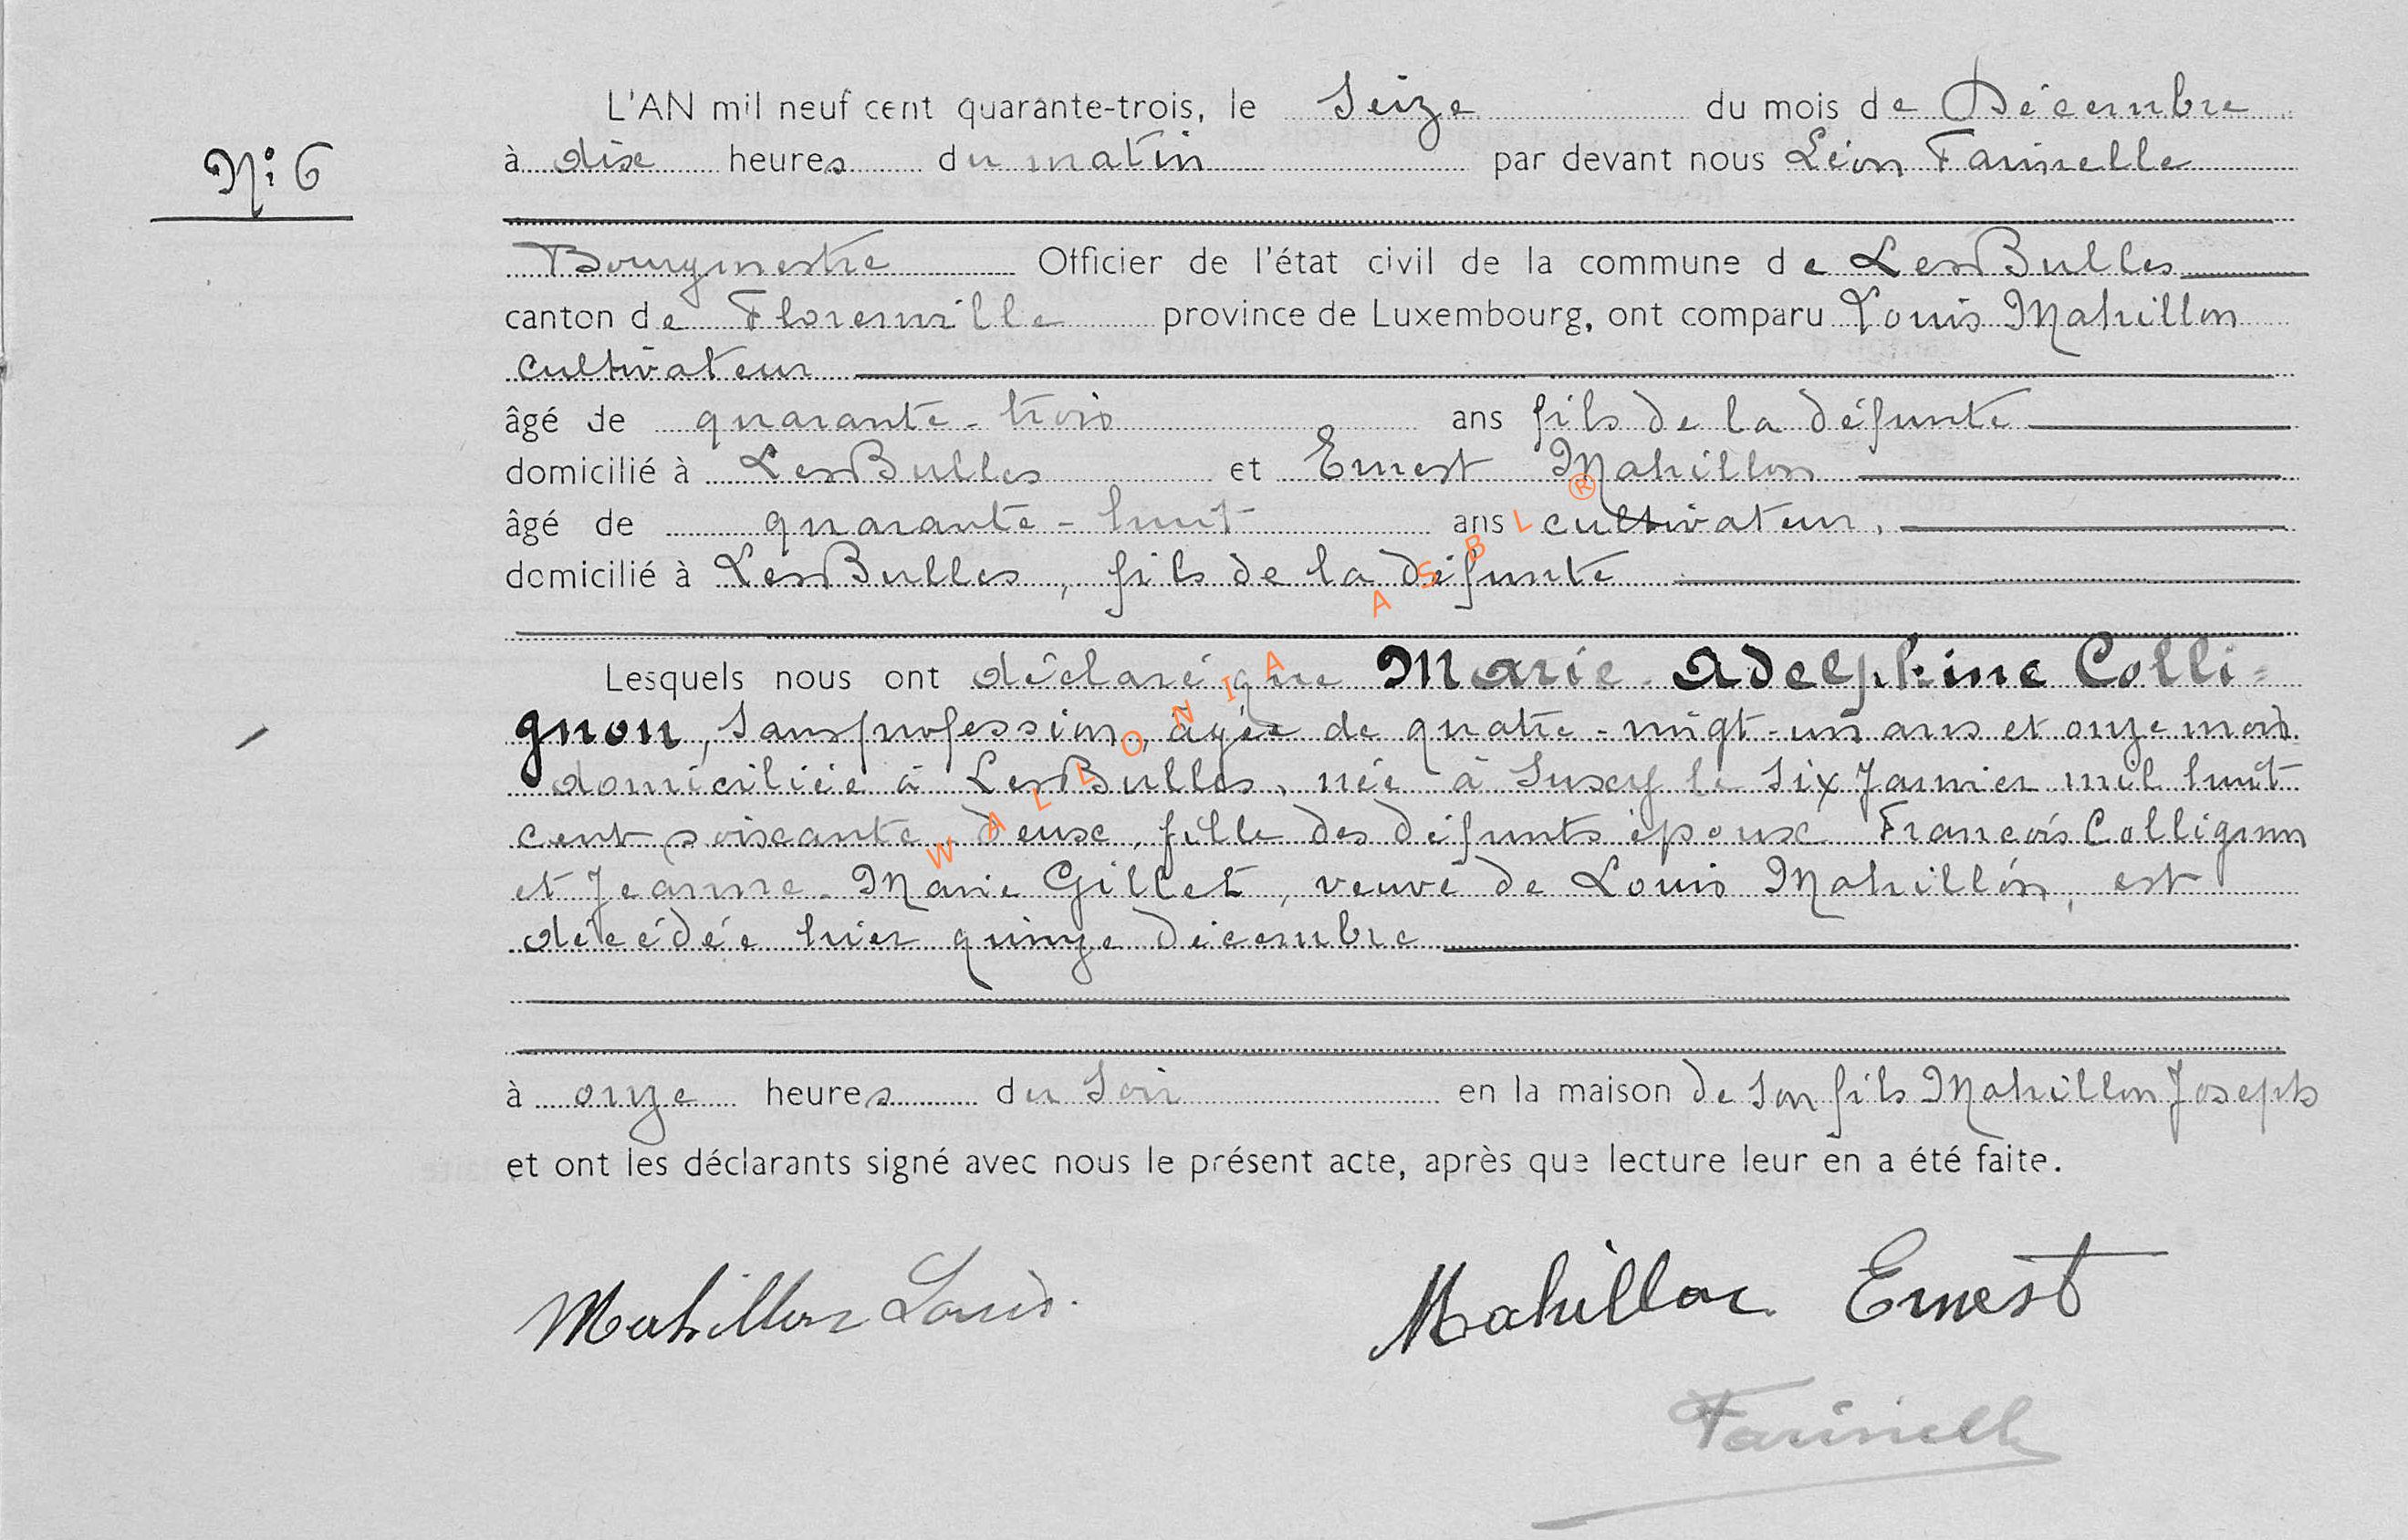 L'AN mil neuf cent quarante-trois, le Seize du mois de Décembre
N° 6
à dix heures du matin par devant nous Léon Farinelle
Bourgmestre Officier de l'état civil de la commune de Les Bulles
canton de Florenville province de Luxembourg, ont comparu Louis Mahillon
cultivateur
âgé de quarante-trois ans fils de la défunte
domicilié à Les Bulles et Ernest Mahillon
âgé de quarante-huit ans cultivateur,
domicilié à Les Bulles, fils de la défunte
Lesquels nous ont déclaré que Marie-Adelphine Colli=
gnon, sans profession, âgée de quatre-vingt-un ans et onze mois
domiciliée à Les Bulles, née à Suxy le six Janvier mil huit
cent soixante deux, fille des défunts époux François Collignon
et Jeanne-Marie Gillet, veuve de Louis Mahillon, est
décédée hier quinze décembre
à onze heures du soir en la maison de son fils Mahillon Joseph
et ont les déclarants signé avec nous le présent acte, après que lecture leur en a été faite.
Mahillon Louis.
Mahillon Ernest
Farinelle
WALLONIA ASBL ®